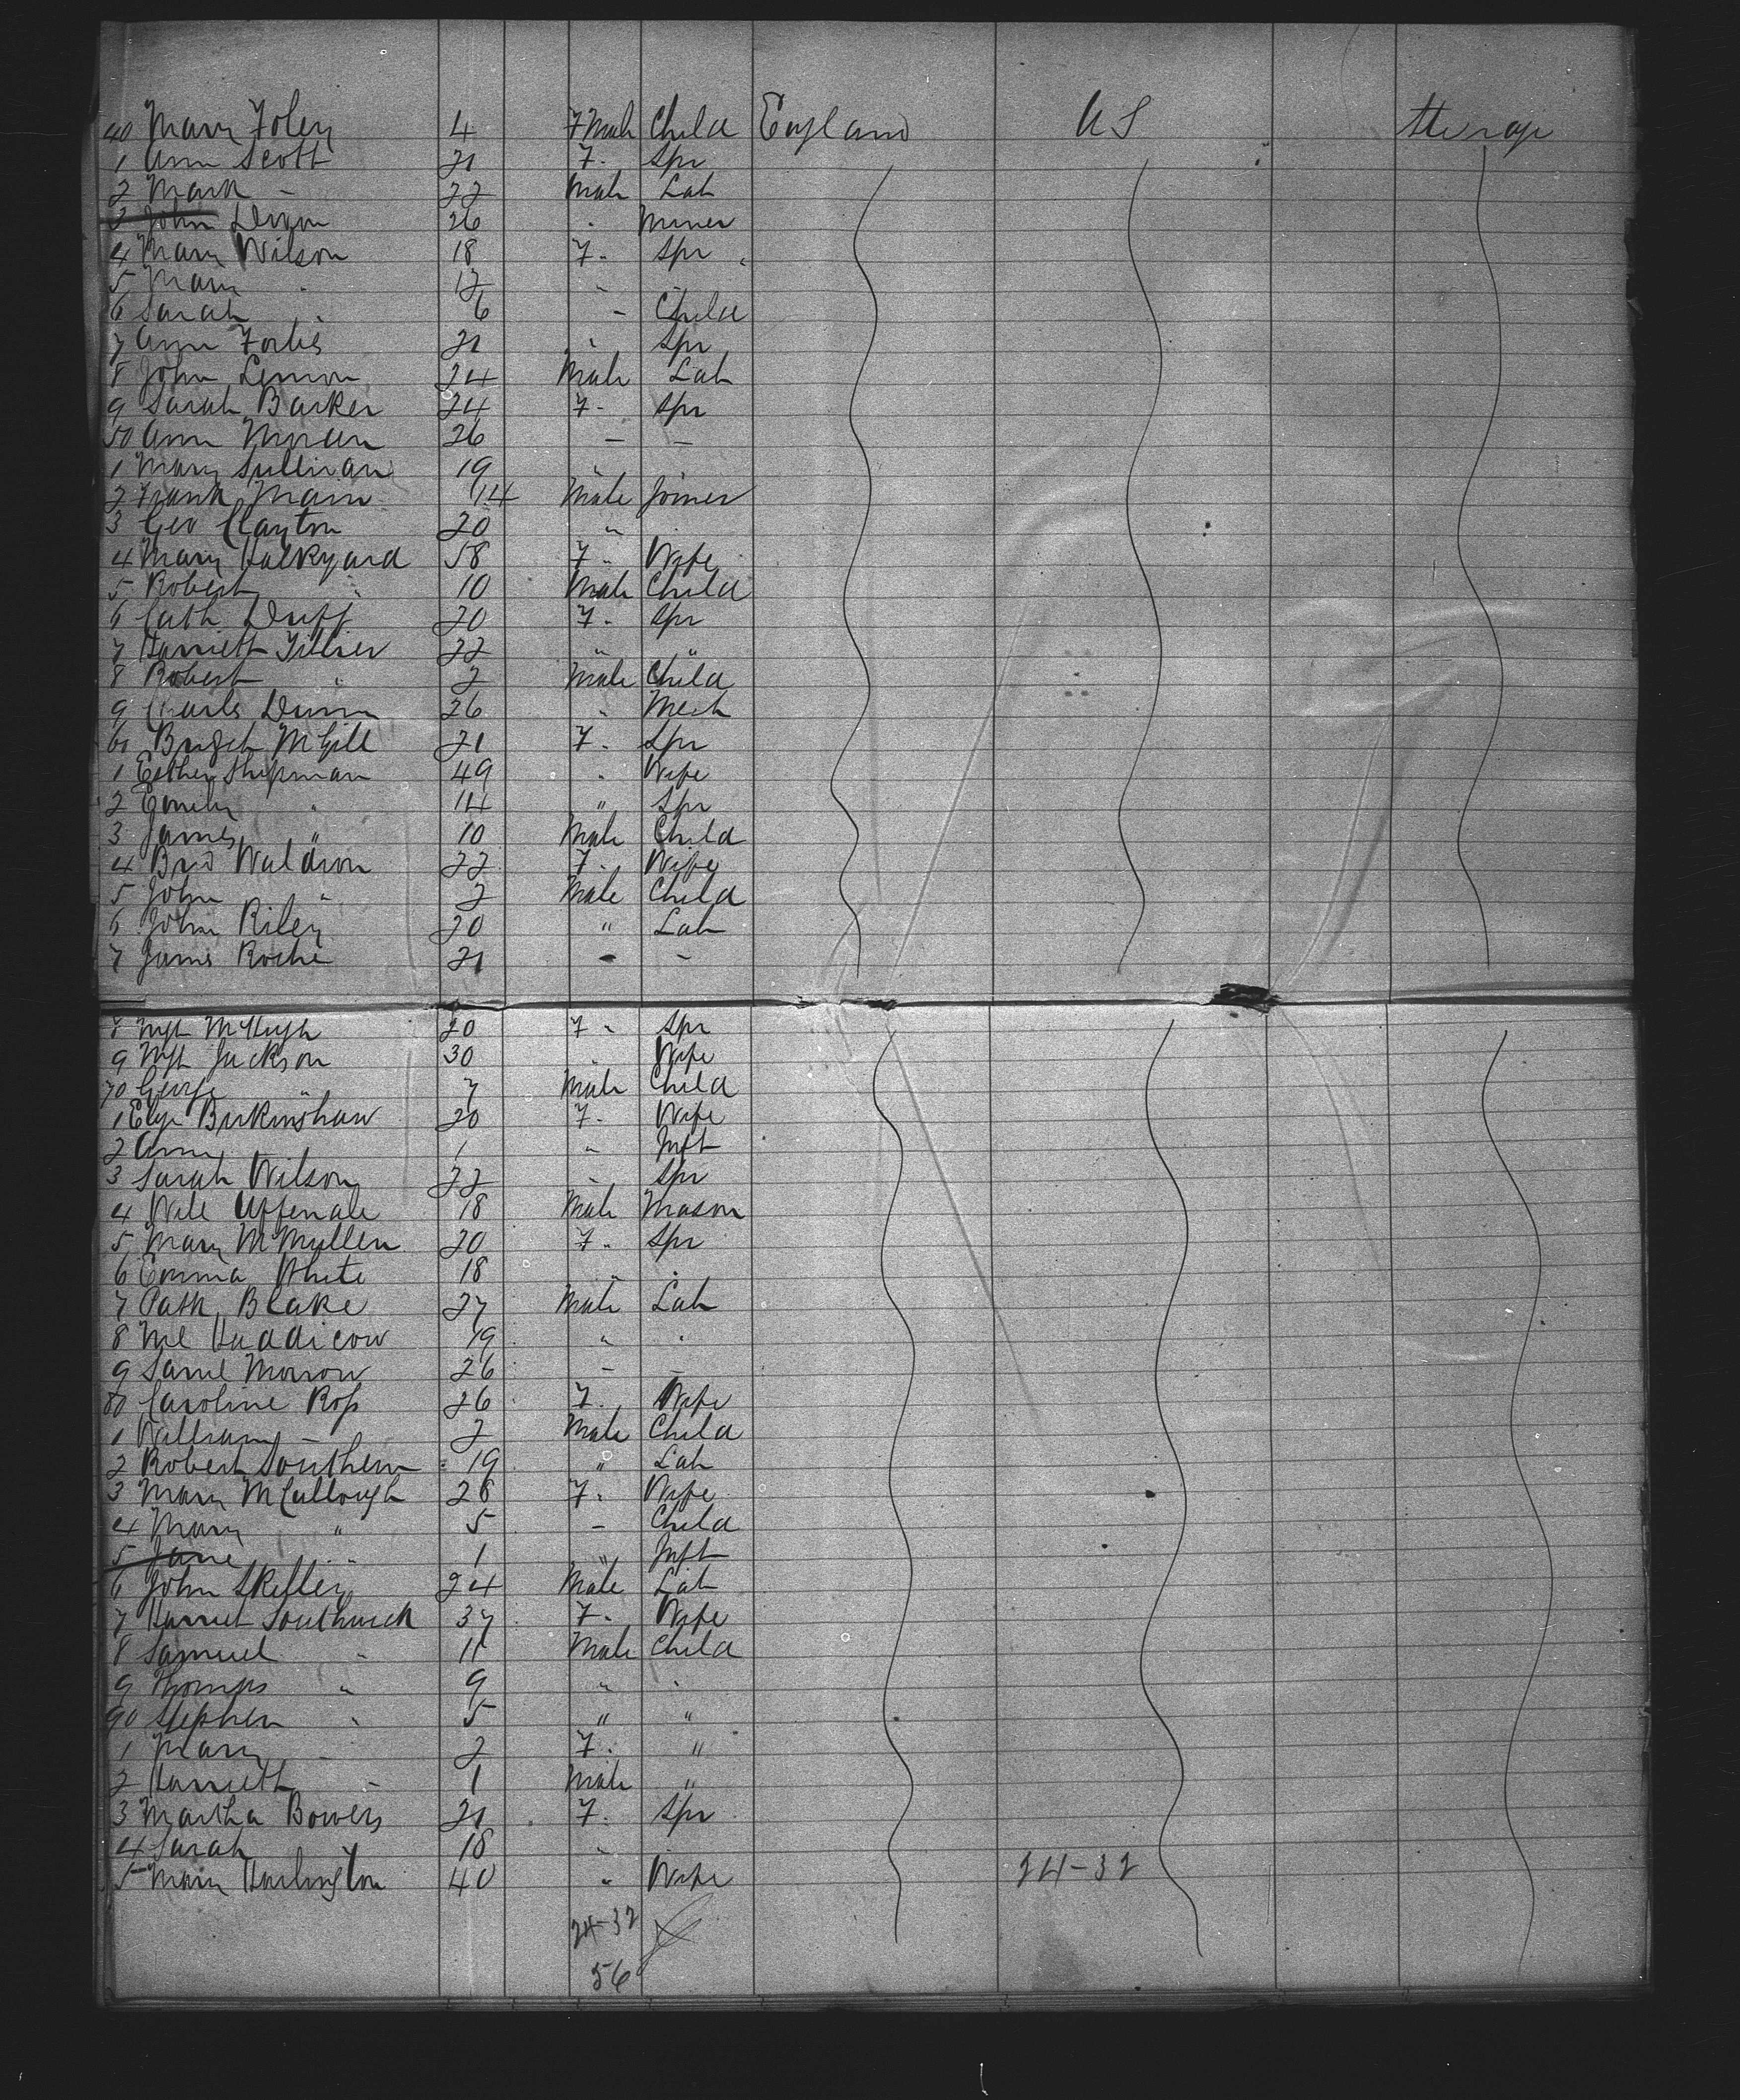 40 Mary Foley 4 F Male Child England US Steerage
1 Ann Scott 21 F - Spr
2 Mark - 22 Male Lab
3 John Dixon 26 " Miner
4 Mary Wilson 18 F - Spr
5 Mary " 12 "
6 Sarah " 6 - Child
7 Ann Forbes 21 " Spr
8 John Lemon 24 Male Lab
9 Sarah Barker 24 F - Spr
50 Ann Moran 26 - -
1 Mary Sullivan 19 "
2 Frank Mann 14 Male Joiner
3 Geo Clayton 20 " "
4 Mary Halkyard 58 F " Wife
5 Robert " 10 Male Child
6 Cath Duff 20 F - Spr
7 Harriett 22 " "
8 Robert " 2 Male Child
9 Charles Dunn 26 " Mech
60 Bridget McGill 21 F - Spr
1 Esther Shipman 49 " Wife
2 Emily " 14 " Spr
3 James " 10 Male Child
4 Brid Waldron 22 F - Wife
5 John " 2 Male Child
6 John Riley 20 " Lab
7 James Roche 21 - -
8 Mgt McHugh 20 F - Spr
9 Mgt Jackson 30 " Wife
70 George " 7 Male Child
1 Eliz Birkinshaw 20 F - Wife
2 Ann 1 " Inft
3 Sarah Wilson 22 - Spr
4 Will 18 Male Mason
5 Mary McMullen 20 F - Spr
6 Emma White 18 " "
7 Patk Blake 27 Male Lab
8 Ml Haddicow 19 " "
9 Saml Morrow 26 - -
80 Caroline Ross 26 F - Wife
1 William - 2 Male Child
2 Robert Southern 19 " Lab
3 Mary McCullough 28 F - Wife
4 Mary " 5 - Child
5 Jane " 1 " Inft
6 John Skelley 24 Male Lab
7 Harriet Southwick 37 F - Wife
8 Samuel " 11 Male Child
9 Thomas " 9 " "
90 Stephen " 5 " "
1 Mary - 2 F - "
2 Harriett - 1 Male "
3 Martha Bowers 21 F - Spr
4 Sarah 18 "
5 Mary Harlington 40 " Wife 24-32
24-32
56